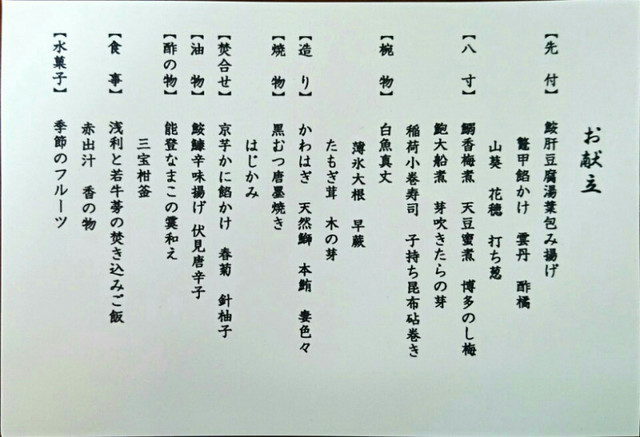 お献立
【先 付】 鮟肝豆腐湯葉包み揚げ
鼈甲餡かけ 雲丹 酢橘
山葵 花穂 打ち葱
【八 寸】 鰯香梅煮 天豆蜜煮 博多のし梅
鮑大船煮 芽吹きたらの芽
稲荷小巻寿司 子持ち昆布砧巻き
【椀 物】 白魚真丈
薄氷大根 早蕨
たもぎ茸 木の芽
【造 り】 かわはぎ 天然鰤 本鮪 妻色々
【焼 物】 黒むつ唐墨焼き
はじかみ
【焚合せ】 京芋かに餡かけ 春菊 針柚子
【油 物】 鮟鱇辛味揚げ 伏見唐辛子
【酢の物】 能登なまこの霙和え
三宝柑釜
【食 事】 浅利と若牛蒡の焚き込みご飯
赤出汁 香の物
【水菓子】 季節のフルーツ